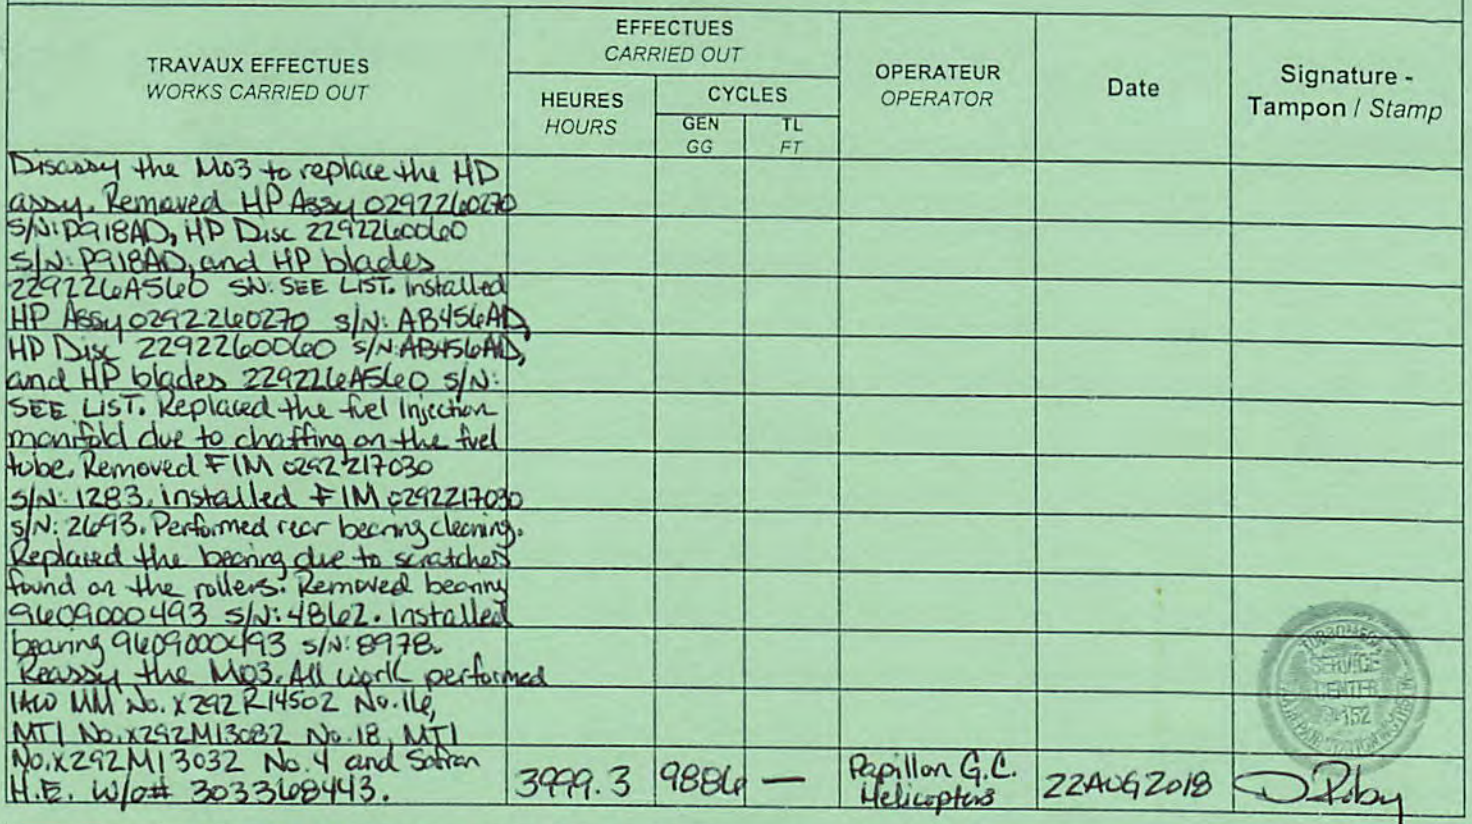 TRAVAUX EFFECTUES
WORKS CARRIED OUT
EFFECTUES
CARRIED OUT
HEURES
HOURS
CYCLES
GEN
GG
TL
FT
OPERATEUR
OPERATOR
Date
Signature -
Tampon / Stamp
Disassy the M03 to replace the HP
assy. Removed HP Assy 0292260270
S/N: P918AD, HP Disc 2292260060
S/N: P918AD, and HP blades
229226A560 SN: SEE LIST. Installed
HP Assy 0292260270 S/N: AB456AD,
HP Disc 2292260060 S/N: AB456AD,
and HP blades 229226A560 S/N:
SEE LIST. Replaced the fuel injection
manifold due to chaffing on the fuel
tube. Removed FIM 0292217030
S/N: 1283. installed FIM 0292217030
S/N: 2693. Performed rear bearing cleaning.
Replaced the bearing due to scratches
found on the rollers. Removed bearing
9609000493 S/N: 4862. Installed
bearing 9609000493 S/N: 8978.
Reassy the M03. All work performed
IAW MM No. X292R14502 No. 16,
MTI No. X292M13082 No. 18, MTI
No. X292M13032 No. 4 and Safran
H.E. W/O# 3033368443.
3999.3
9886
—
Papillon G.C.
Helicopters
22AUG2018
SERVICE
CENTER